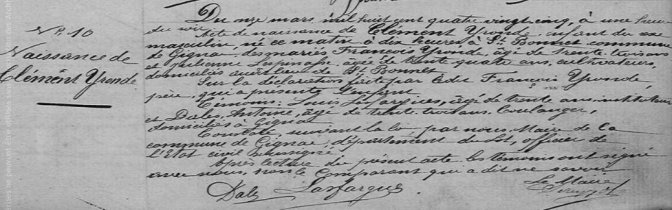 N° 10
Naissance de
Clément Yronde
Du onze mars mil huit cent quatre vingt cinq, à une heure
du soir
Acte de naissance de Clément Yronde, enfant du sexe
masculin né ce matin à dix heures à St Bonnet commune
de Gignac, des mariés François Yronde, âgé de trente trois ans
et âgée de trente quatre ans, cultivateurs,
domiciliés au lieu de St Bonnet
Sur la déclaration faite par ledit François Yronde,
père, qui a présenté l'enfant
Témoins: Louis Lasfargues, âgé de trente ans, instituteur
et Dales, Antoine, âgé de trente ans, boulanger,
domiciliés à Gignac
Constaté, suivant la loi par nous, Maire de la
commune de Gignac, département du Lot, officier de
l'Etat civil soussigné
Après lecture du présent acte les témoins ont signé
avec nous, non le comparant qui a dit ne savoir.
Dales Lasfargues Le Maire